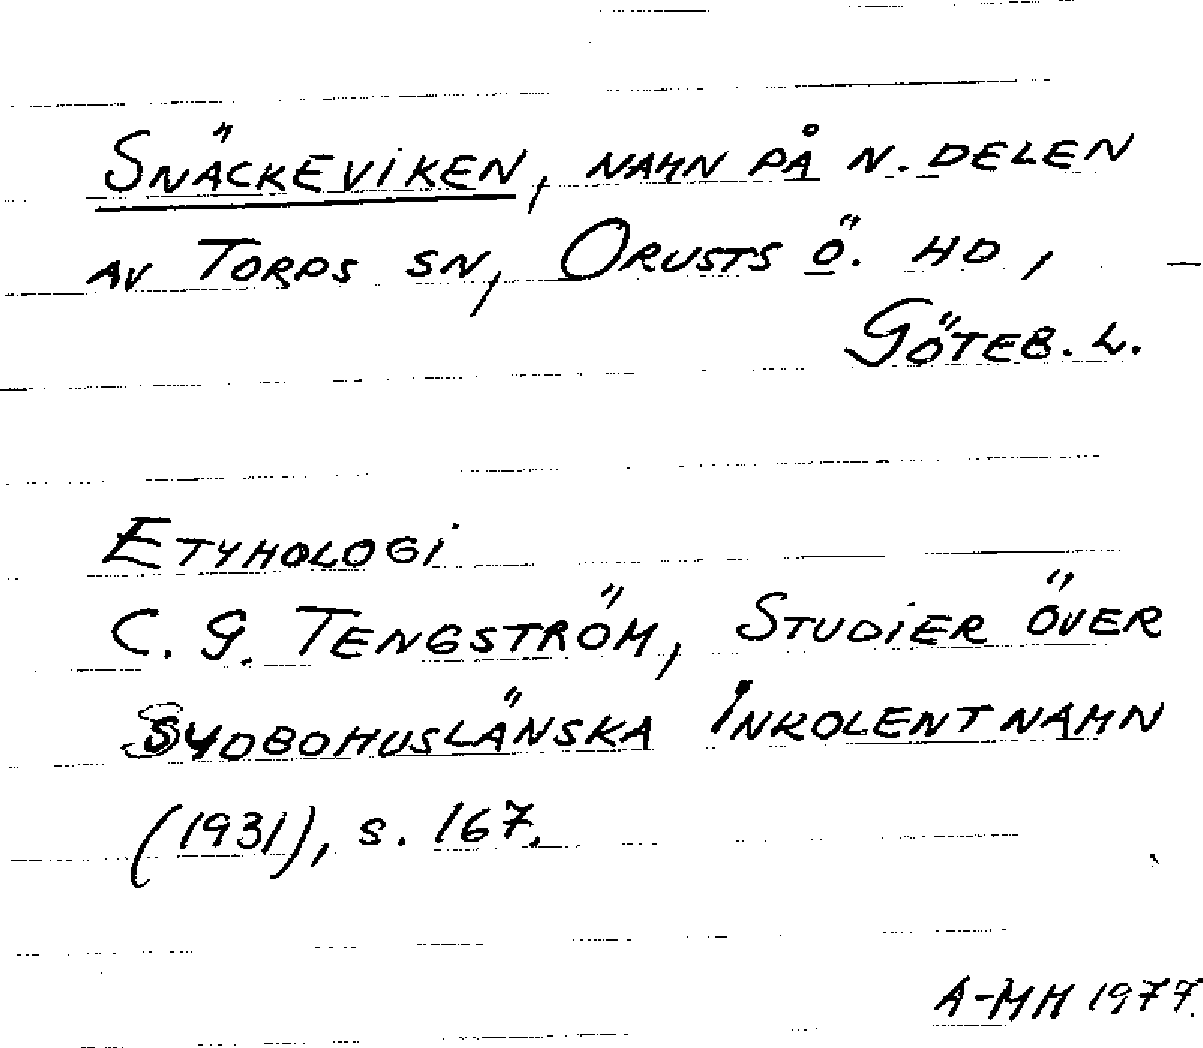 Snäckeviken, namn på n. delen
av Torps sn, Orusts ö. hd,
Göteb. l.
Etymologi
C. G. Tengström, Studier över
Sydbohuslänska Inkolentnamn
(1931), s. 167.
A-MH 1977.